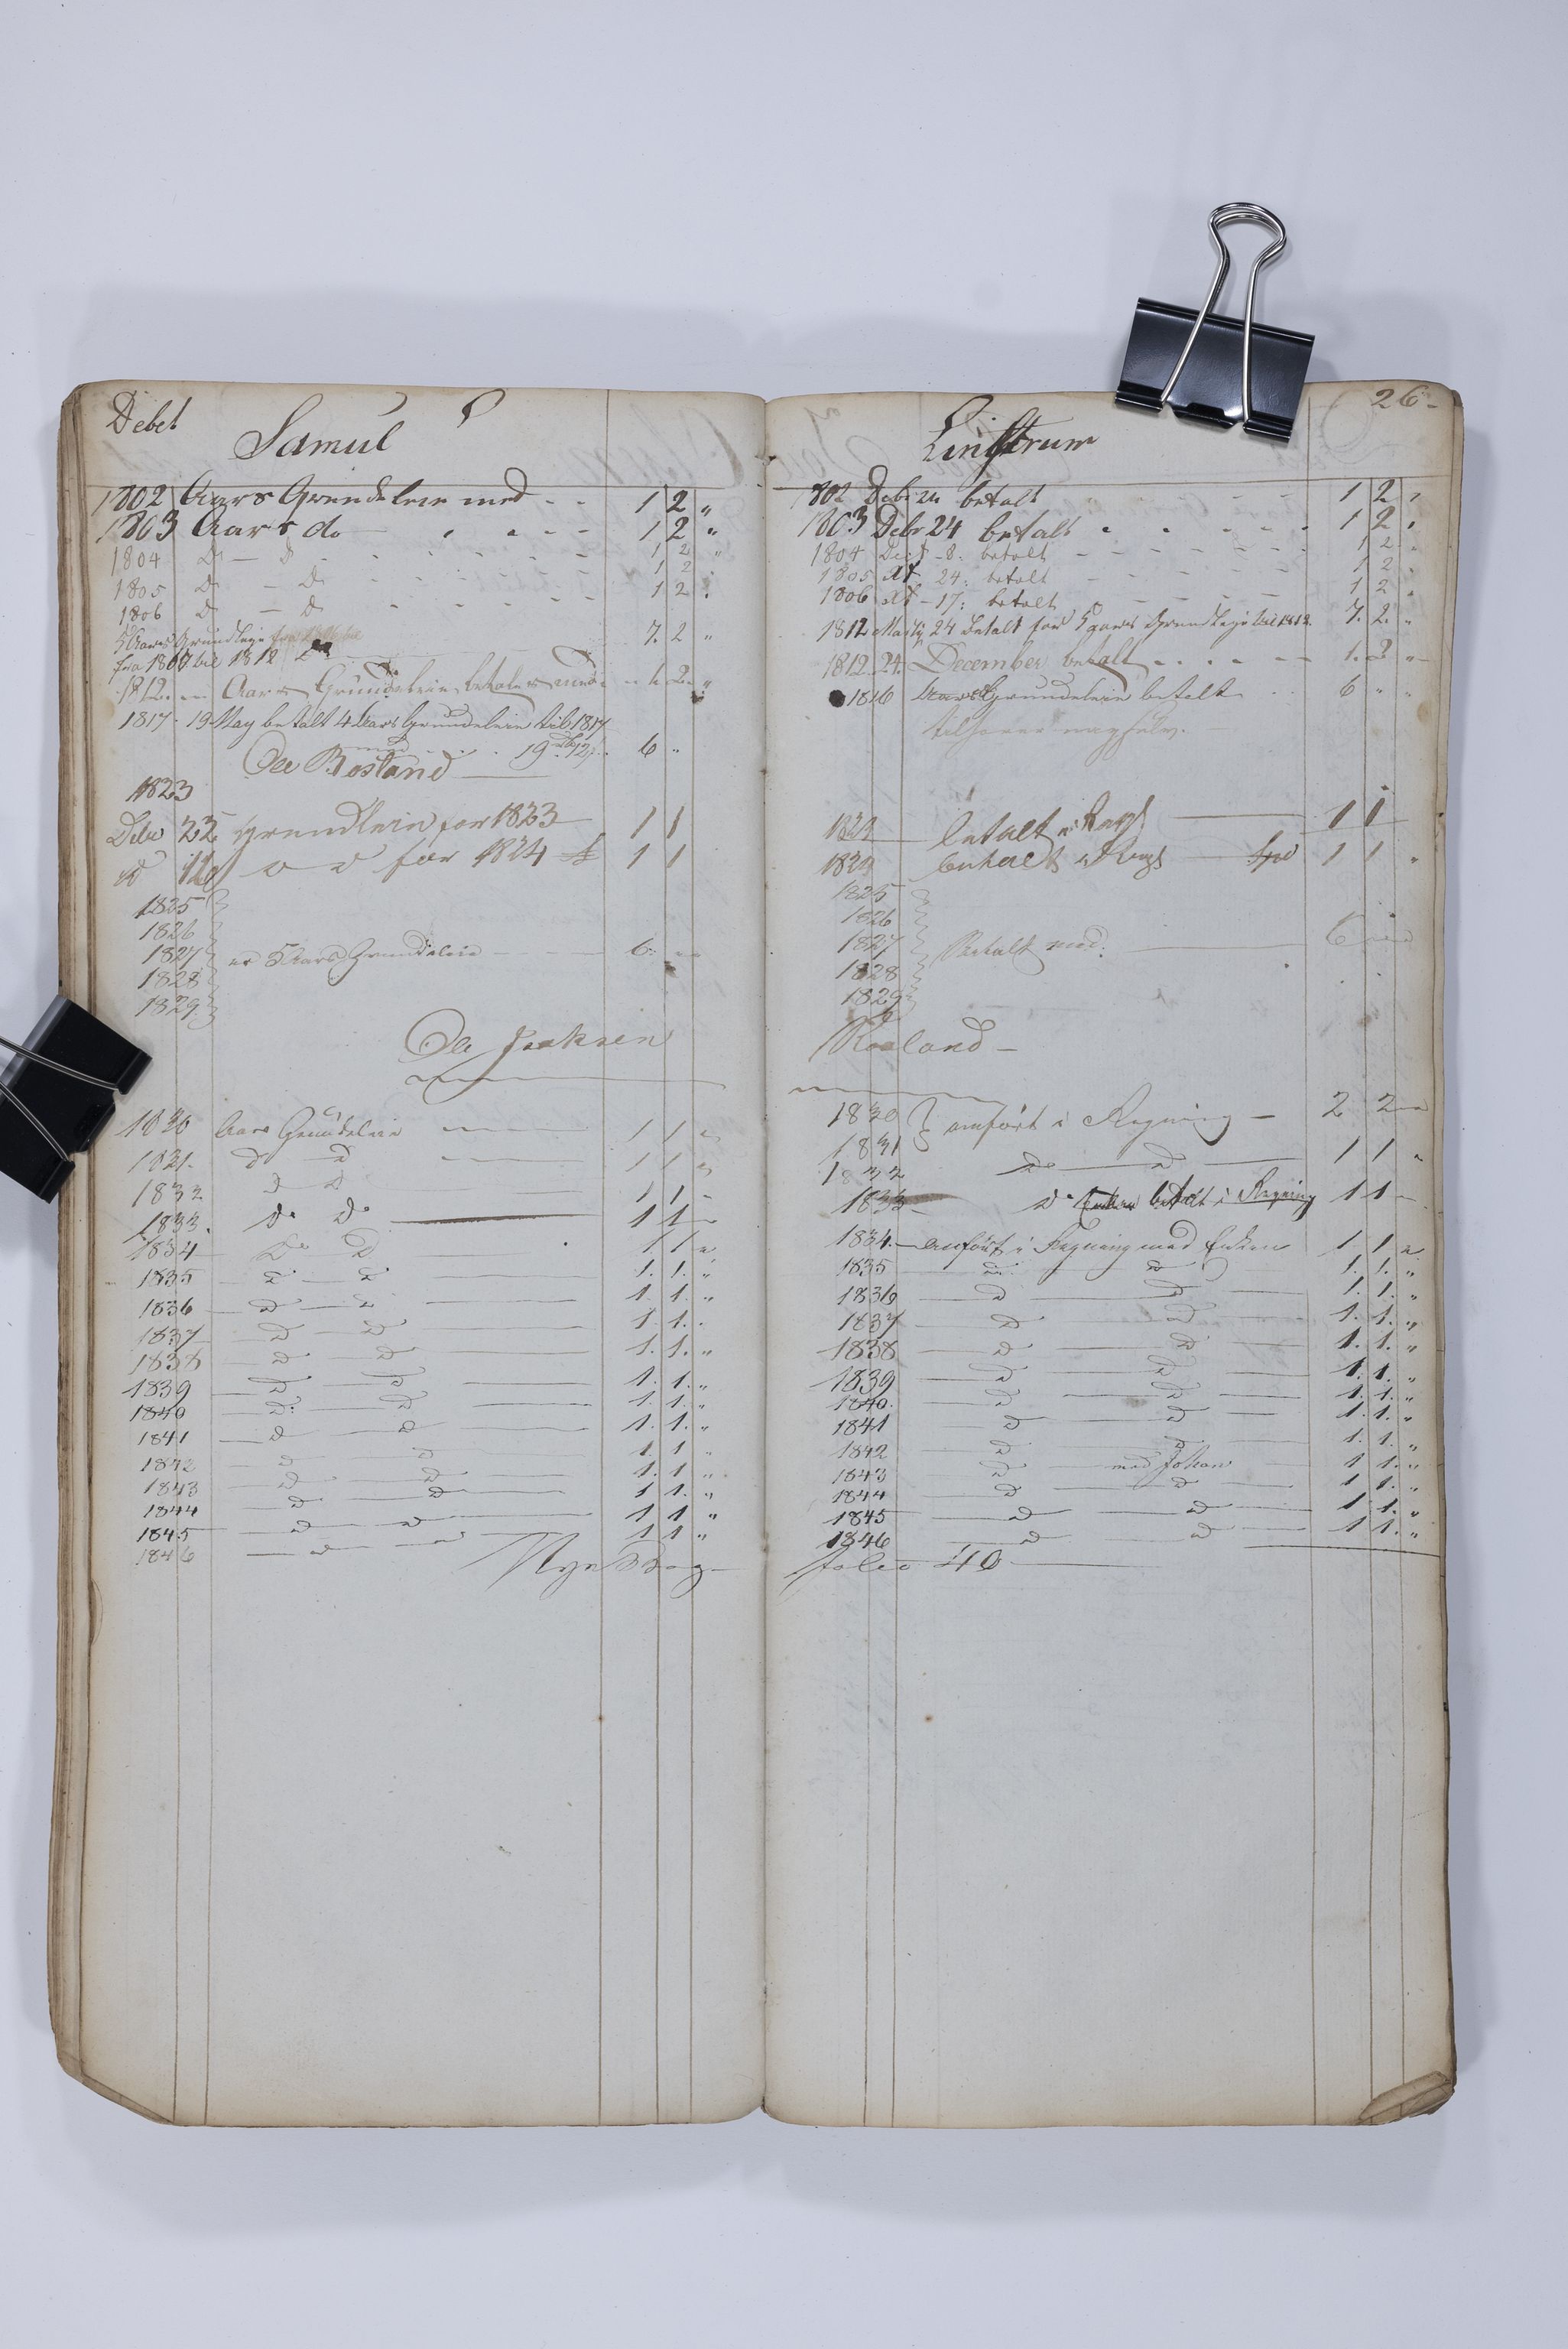 Debet
Samul
1802 Aars Grundeleie med - - 1 2 "
1803 Aars do - - - - 1 2 "
1804 d - d - - - - 1 2 "
1805 d - d - - - - 1 2 "
1806 d - d - - - - 1 2 "
5 Aars Grundleje
fra 1807 til 1812 7. 2 "
1812. Aars Grundeleie betales med 1. 2. "
1817. 19 May betalt 4 Aars Grundeleie til 1817
6 "
Ole Rosland
1823
Debr 22 grundleie for 1823 1 1
d for 1824 1 1
1825
1826
1827 er 5 Aars Grundeleie 6. "
1828
1829
Ole Isaksen
1830 Aars Grundeleie 1 1 "
1831. d d 1 1 "
1832 d d 1 1 -
1833. do do 1 1 -
1834 do d 1 1 "
1835 d d 1. 1. "
1836 d d 1. 1. "
1837 d d 1. 1. "
1838 d d 1. 1. "
1839 d d 1. 1. "
1840 d: d 1. 1. "
1841 d d 1. 1. "
1842 d d 1. 1 "
1843 d d 1. 1 "
1844 d d 1 1. "
1845 d d 1 1 "
1846 d d 1 1 "
Nye Bog
26-
Linstrum
1802 Debr 24 betalt 1 2 "
1803 Debr 24 betalt 1 2 "
1804 Decr - 8. betalt 1 2 "
1805 dt 24: betalt 1 2 "
1806 dt - 17: betalt 1 2 "
1812 24 betalt for 5 aars Grundleje til 1812. 7. 2. "
1812. 24. December betalt 1. 2 "
1816 Aars Grundeleie betalt 6 " "
betalt i Regn 1 1
1824 Regn 1 1 "
1825
1826
1827 Betalt med. 6
1828
1829
Rosland -
1830
1831 anført i Regning - 2 2
1832 do d 1 1 "
1833 do betalt i Regning 1 1 -
1834. - anført i Regning med Enken 1 1 "
1835 d d 1. 1. "
1836 d d 1. 1. "
1837 d d 1. 1. "
1838 d d 1. 1. "
1839 d d 1. 1. "
1840. d d 1. 1. "
1841 d d 1. 1. "
1842 d d 1. 1. "
1843 d med Johan 1 1. "
1844 d d 1 1. "
1845 d d 1 1. "
1846 d d 1 1. "
folio 40